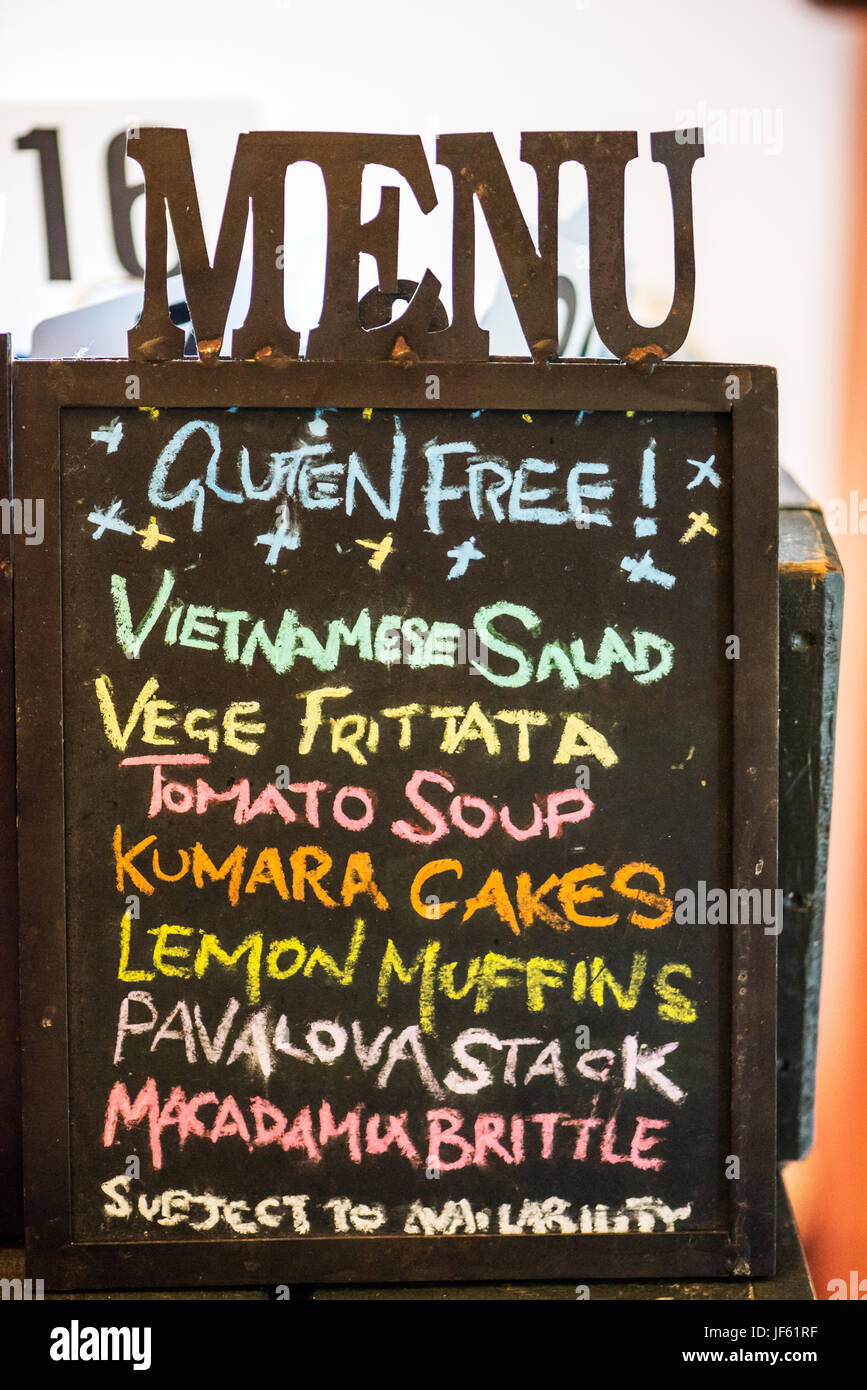 16
MENU
GLUTEN FREE!
VIETNAMESE SALAD
VEGE FRITTATA
TOMATO SOUP
KUMARA CAKES
LEMON MUFFINS
PAVALOVA STACK
MACADAMIA BRITTLE
SUBJECT TO AVAILABILITY
alamy
Image ID: JF61RF
www.alamy.com